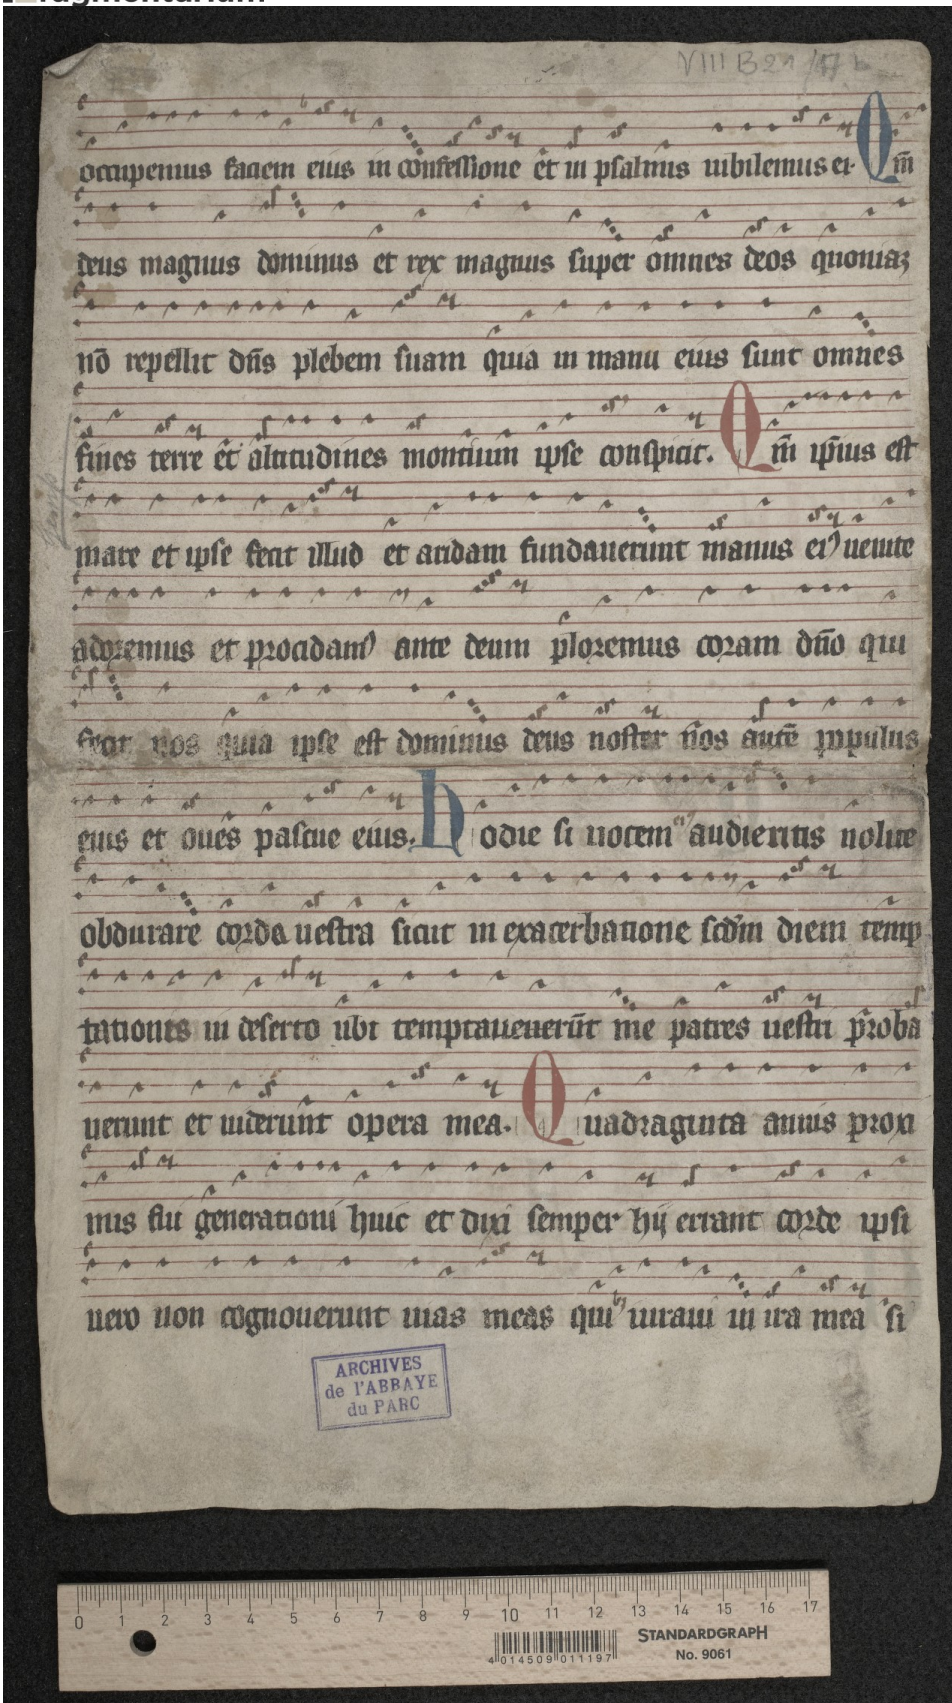 ragmentarium
VIII B 21 /17 b
occupemus faciem eius in confessione et in psalmis iubilemus ei. Qm̄
deus magnus dominus et rex magnus super omnes deos quoniaꝫ
nō repellit dn̄s plebem suam quia in manu eius sunt omnes
fines terre et altitudines montium ipse conspicit. Qm̄ ip̄ius est
mare et ipse fecit illud et aridam fundauerunt manus eiꝰ uenite
adoremus et procidamꝰ ante deum ploremus coram dn̄o qui
fecit nos quia ipse est dominus deus noster nos autē populus
eius et oues pascue eius. Hodie si uocem eiꝰ audieritis nolite
obdurare corda uestra sicut in exacerbatione scd̄m diem temp
tationis in deserto ubi temptaueuerūt me patres uestri proba
uerunt et uiderunt opera mea. Quadraginta annis proxi
mus fui generationi huic et dixi semper hij errant corde ipsi
uero non cognouerunt uias meas quibꝰ iuraui in ira mea si
ARCHIVES
de l'ABBAYE
du PARC
0 1 2 3 4 5 6 7 8 9 10 11 12 13 14 15 16 17
STANDARDGRAPH
No. 9061
4 014509 011197